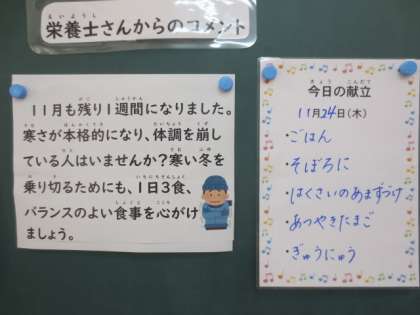 栄養士さんからのコメント
11月も残り1週間になりました。
寒さが本格的になり、体調を崩し
ている人はいませんか?寒い冬を
乗り切るためにも、1日3食、
バランスのよい食事を心がけ
ましょう。
今日の献立
11月24日(木)
・ごはん
・そぼろに
・はくさいのあまずづけ
・あつやきたまご
・ぎゅうにゅう